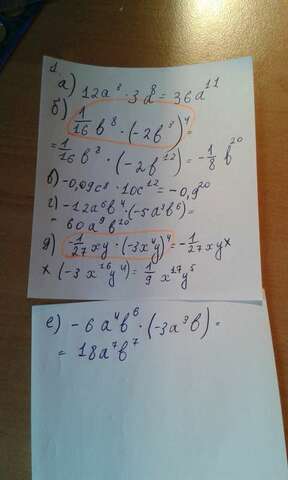 1.
а) 12a⁸ · 3a⁸ = 36a¹¹
б) 1/16 b⁸ · (-2b³)⁴ =
= 1/16 b⁸ · (-2b¹²) = -1/8 b²⁰
в) -0,09c⁸ · 10c¹² = -0,9²⁰
г) -12a⁶b⁴ · (-5a³b⁶) =
= 60a⁹b¹⁰
д) -1/27 xy · (-3x⁴y)⁴ = -1/27 xy x
x (-3x¹⁶y⁴) = 1/9 x¹⁷y⁵
е) -6a⁴b⁶ · (-3a³b) =
= 18a⁷b⁷